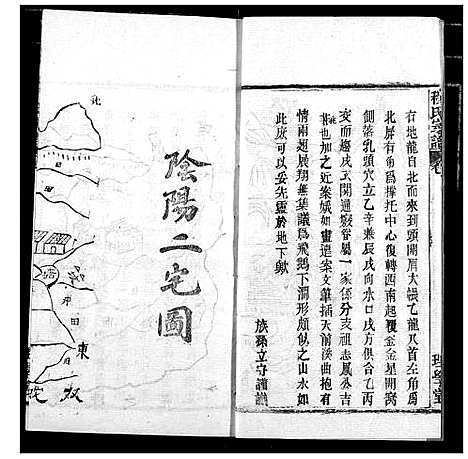 程氏宗譜 卷
右地龍自北而來到頭開肩大帳乙龍入首左角爲
北屏右角爲擇托中心復轉西南起覆金金星開窩
側落乳頭穴立乙辛兼辰戌向水口戌方俱合乙丙
交而趨戌玄關通竅眷屬一家係分支祖志鳳公吉
其也加之近案娥如畫遠案文筆插天前溪曲抱有
情兩翅展翔無異議爲飛鵝下湖形頗似之山水如
此庶可以妥先靈於地下歟
族孫立守謹識
理學堂
陰陽二宅圖
北
東
田
井